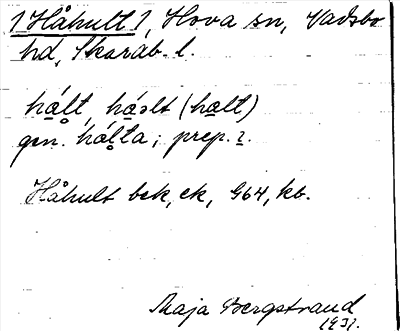 1 Håhult 1, Hova sn, Vadsbo
hd, Skarab. l.
hålt, håolt (halt)
gen. hålta; prep. i.
Håhult bek, ek, G64, kb.
Maja Bergstrand
1931.